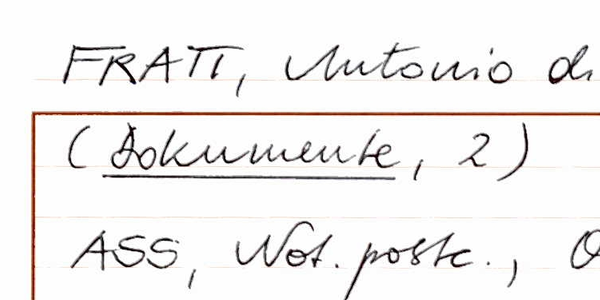 FRATI, Antonio di
(Dokumente, 2)
ASS, Not. postc.,